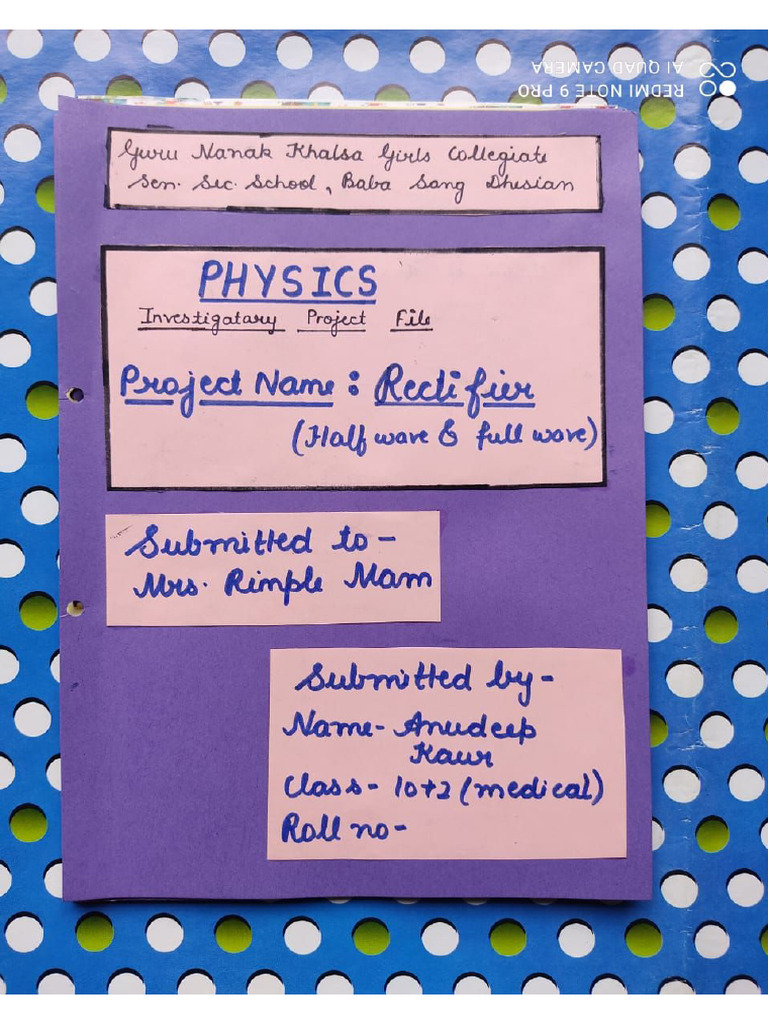 Guru Nanak Khalsa Girls Collegiate
Sen. Sec. School, Baba Sang Dhesian
PHYSICS
Investigatary Project File
Project Name : Rectifier
(Half wave & full wave)
Submitted to -
Mrs. Rimple Mam
Submitted by -
Name - Anudeep
Kaur
Class - 10+2 (medical)
Roll no -
REDMI NOTE 9 PRO
AI QUAD CAMERA